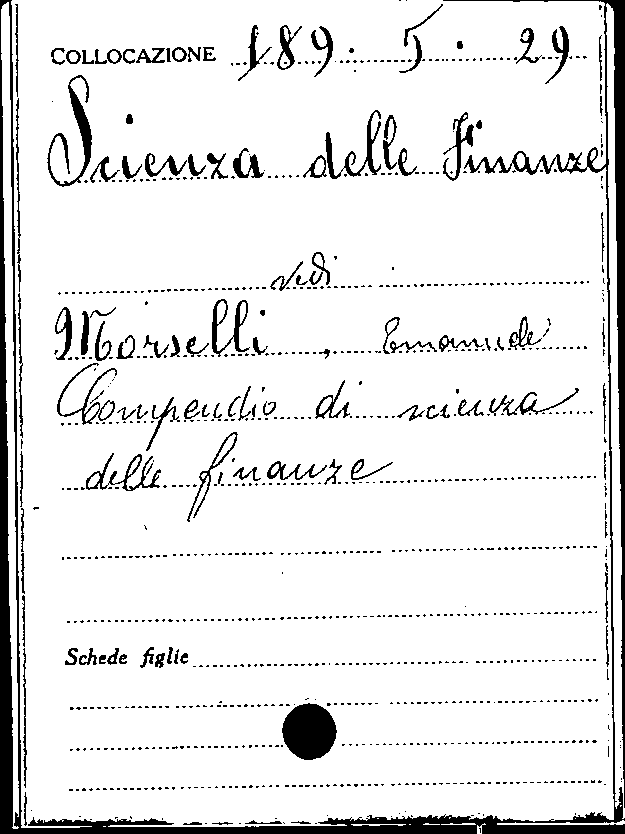 COLLOCAZIONE 189. 5. 29
Scienza delle Finanze
vedi
Morselli, Emanuele
Compendio di scienza
delle finanze
Schede figlie